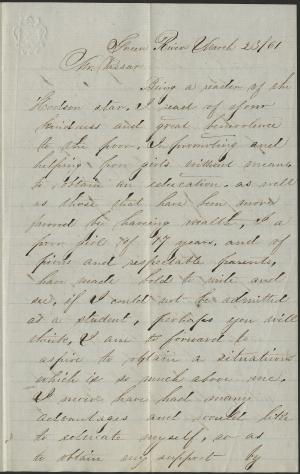 Green River March 23/61
Mr. Vassar
Being a reader of the
Hudson star, I read of your
kindness and great benevolence
to the poor. In promoting and
helping poor girls without means
to obtain an education. as well
as those that have been more
proud by having wealth, I a
poor girl of 17 years, and of
pious and respectable parents,
have made bold to write and
see, if I could not be admitted
as a student, perhaps you will
think, I am to forward to
aspire to obtain a situation
which is so much above me.
I never have had many
advantages and would like
to educate myself, so as
to obtain my support by